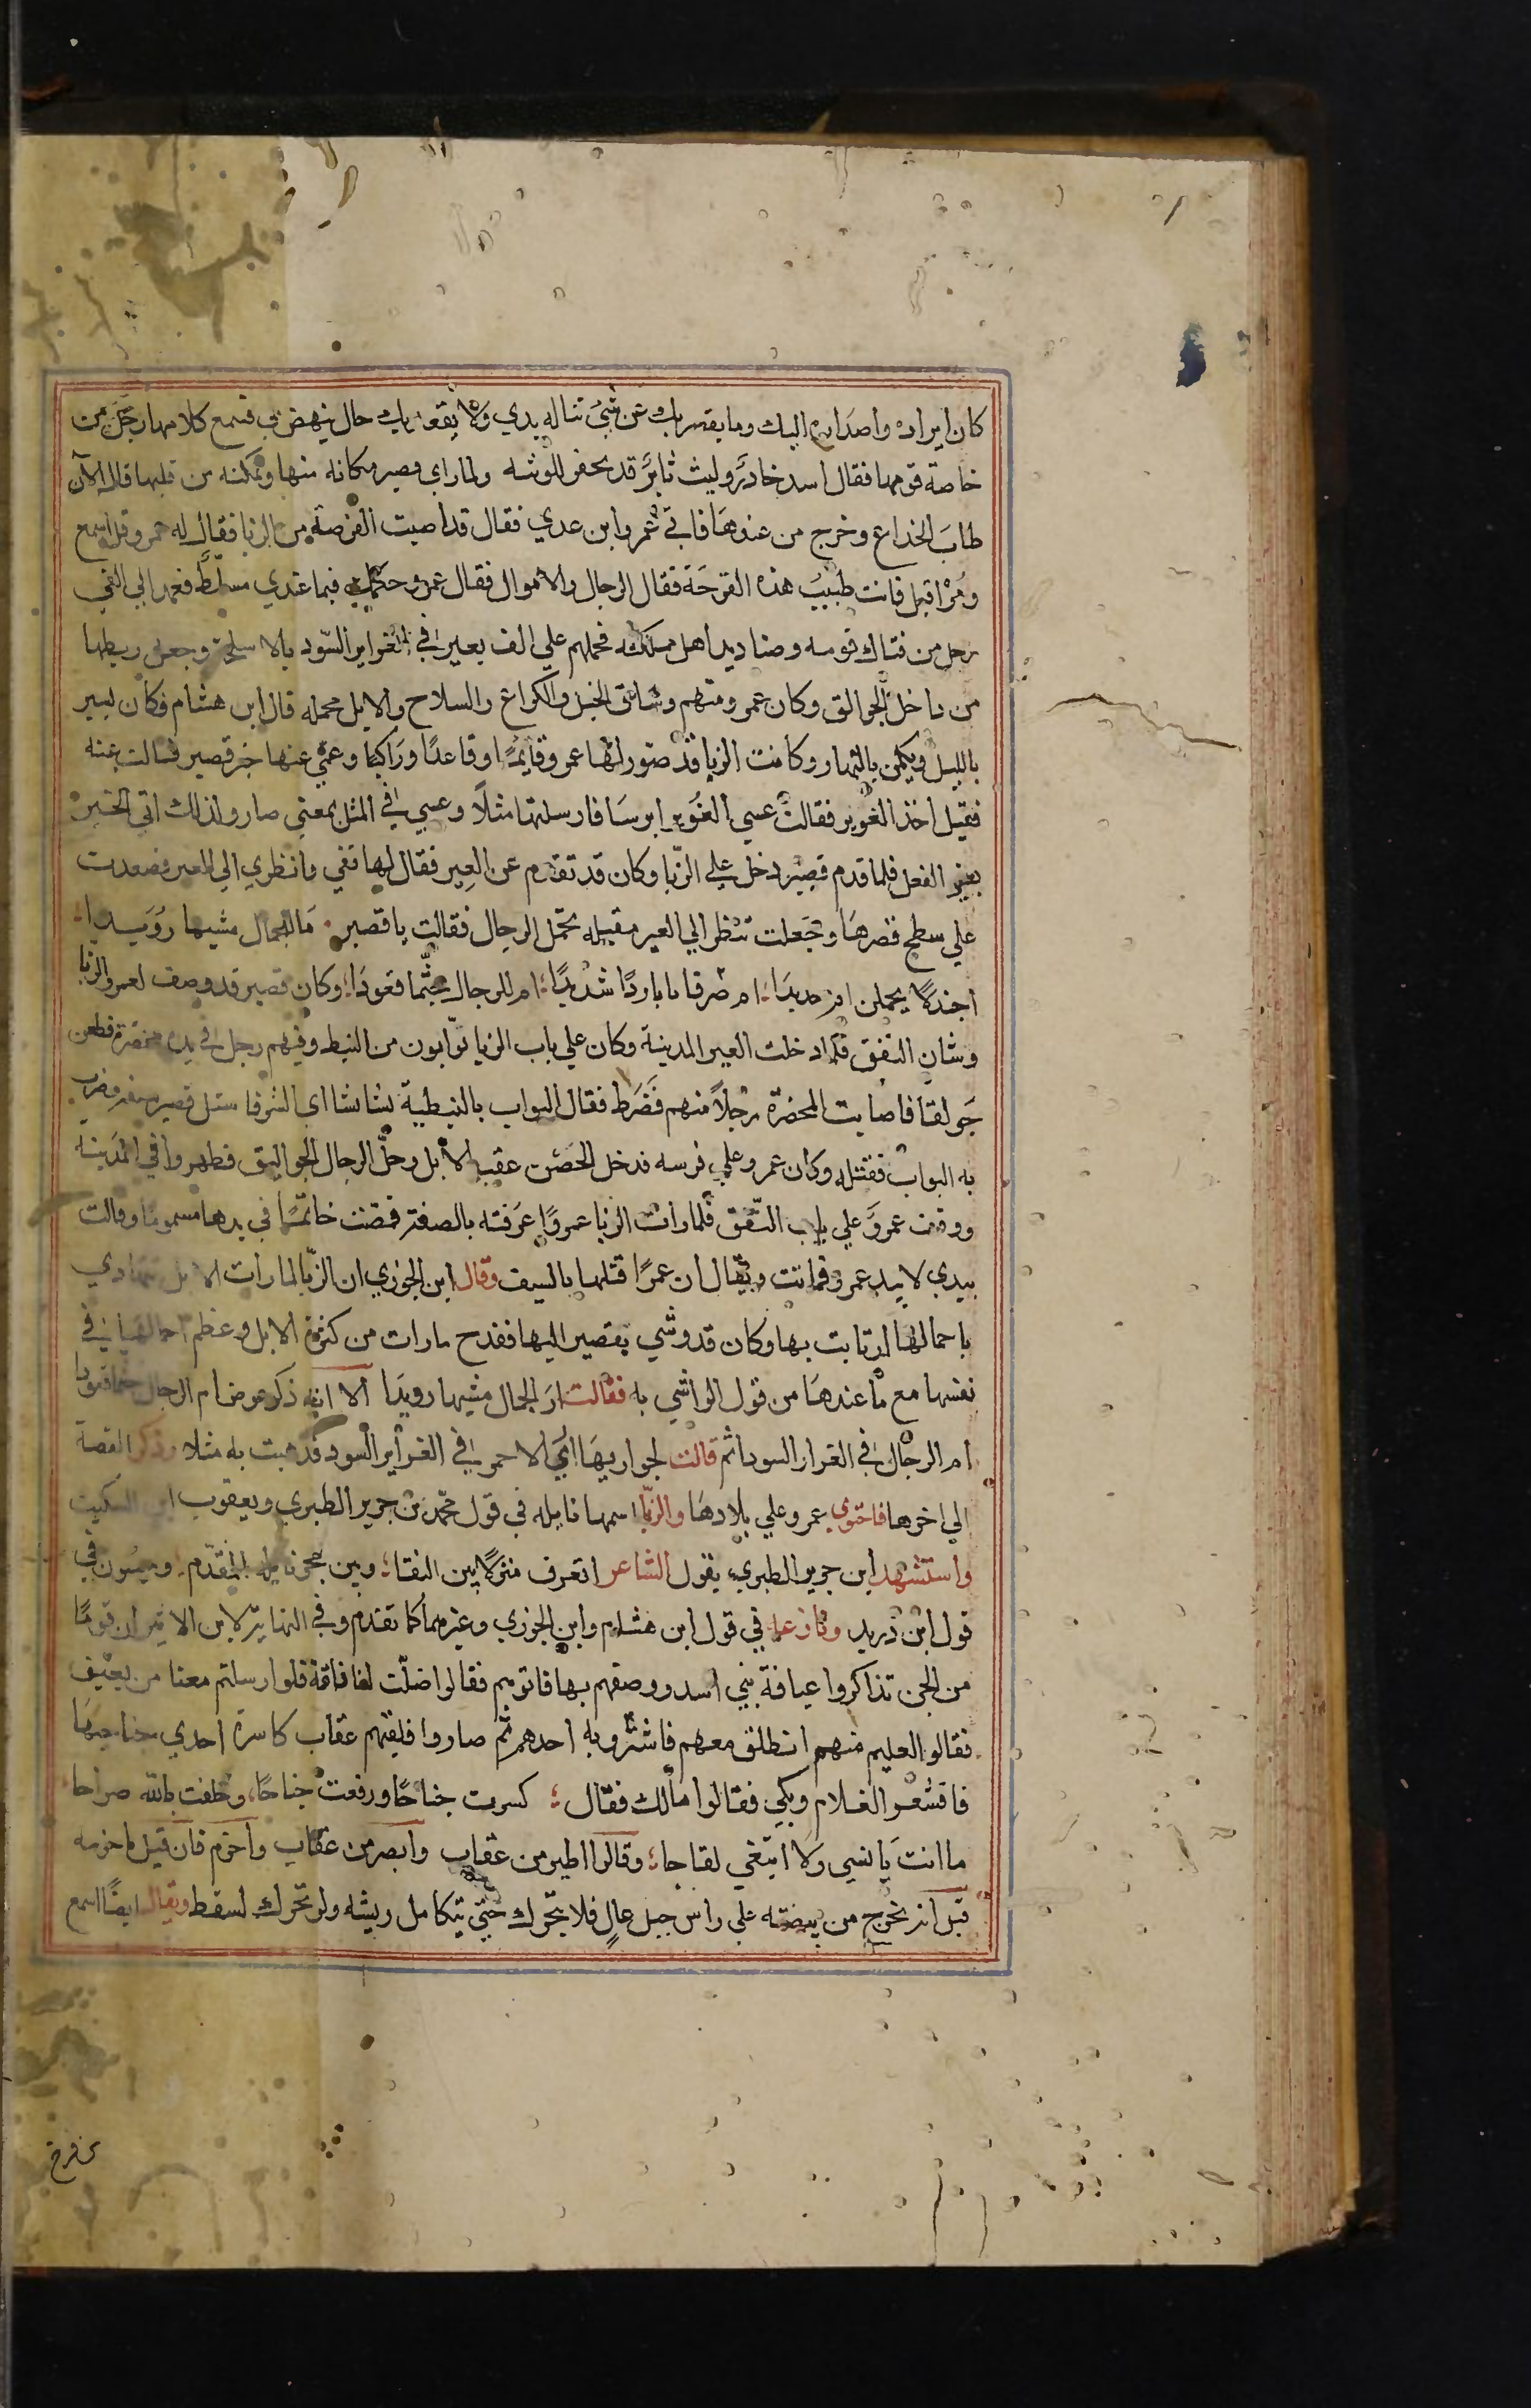 كان ايراده واصداره اليك وما يقصر بك عن شي تناله يدي ولا يقعد بك حال ينهض بي فسمع كلامها رجل من
خاصة قومها فقال اسد خادر وليث ثاير قد تحفز للوثبه ولما راي قصير مكانه منها وتمكنه من قلبها قال الآن
طاب الخداع وخرج من عندها فاتي عمرو ابن عدي فقال قد اصبت الفرصة من الزبا فقال له عمرو قل اسمع
ومر اقبل فانت طبيب هذه القرحة فقال الرجال والاموال فقال عمرو حكمك فيما عندي مسلط فعمد الي الفي
رجل من فتاك قومه وصناديد اهل مملكته فحملهم علي الف بعير في الغراير السود بالاسلحة وجعل ربطها
من داخل الجوالق وكان عمرو منهم وساق الخيل والكراع والسلاح والابل محمله قال ابن هشام فكان يسير
بالليل ويكمن بالنهار وكانت الزبا قد صور لها عمرو قايما وقاعدا وراكبا وعمي عنها خبر قصير فسالت عنه
فقيل اخذ الغوير فقالت عسي الغوير ابوسا فارسلتها مثلا وعسي في المثل بمعني صار ولذلك اتي الخبر
بغير الفعل فلما قدم قصير دخل علي الزبا وكان قد تقدم عن العير فقال لها قفي وانظري الي العير فصعدت
علي سطح قصرها وجعلت تنظر الي العير مقبله تحمل الرجال فقالت يا قصير ما للجمال مشيها رويدا
اجندلا يحملن ام حديدا ام صرفانا باردا شديدا ام للرجال جثما قعودا وكان قصير قد وصف لعمرو الزبا
وشان النفق فلما دخلت العير المدينة وكان علي باب الزبا بوابون من النبط وفيهم رجل في يده مخصرة فطعن
جولقا فاصابت المخصرة رجلا منهم فضرط فقال البواب بالنبطية بشا بشا اي الشر فاستل قصير سيفه فضرب
به البواب فقتله وكان عمرو علي فرسه فدخل الحصن عقب الابل وحل الرجال الجواليق فظهروا في المدينه
ووقف عمرو علي باب النفق فلما رات الزبا عمروا عرفته بالصفة فمصت خاتما في يدها مسموما وقالت
بيدي لا بيد عمرو فماتت ويقال ان عمرا قتلها بالسيف وقال ابن الجوزي ان الزبا لما رات الابل تتهادي
باحمالها ارتابت بها وكان قد وشي بقصير اليها فقدح ما رات من كثرة الابل وعظم احمالها في
نفسها مع ما عندها من قول الواشي به فقالت اري الجمال مشيها رويدا الا انه ذكر عوض ام الرجال جثما قعودا
ام الرجال في الغرار السودا ثم قالت لجواريها اري الاحمر في الغراير السود فذهبت به مثلا وذكر القصة
الي اخرها فاحتوي عمرو علي بلادها والزبا اسمها نايله في قول محمد بن جرير الطبري ويعقوب ابن السكيت
واستشهد ابن جرير الطبري بقول الشاعر اتعرف منزلا بين النقا وبين مجر نايلة المقدم وميسون في
قول ابن دريد وفارعه في قول ابن هشام وابن الجوزي وغيرهما كما تقدم وفي النهاية لابن الاثير ان قوما
من الجن تذاكروا عيافة بني اسد ووصفهم بها فاتوهم فقالوا ضلت لنا ناقة فلو ارسلتم معنا من يعيف
فقالوا لغليم منهم انطلق معهم فاستردفه احدهم ثم صاروا فلقيهم عقاب كاسرة احدي جناحيها
فاقشعر الغلام وبكي فقالوا مالك فقال كسرت جناحا ورفعت جناحا وحلفت بالله صراحا
ما انت بانسي ولا تبتغي لقاحا وقالوا اطير من عقاب وابصر من عقاب واحزم فان قيل ما حزمه
قيل انه يخرج من بيضته علي راس جبل عال فلا يتحرك حتي يتكامل ريشه ولو تحرك لسقط ويقال ايضا اسمع
من فرخ